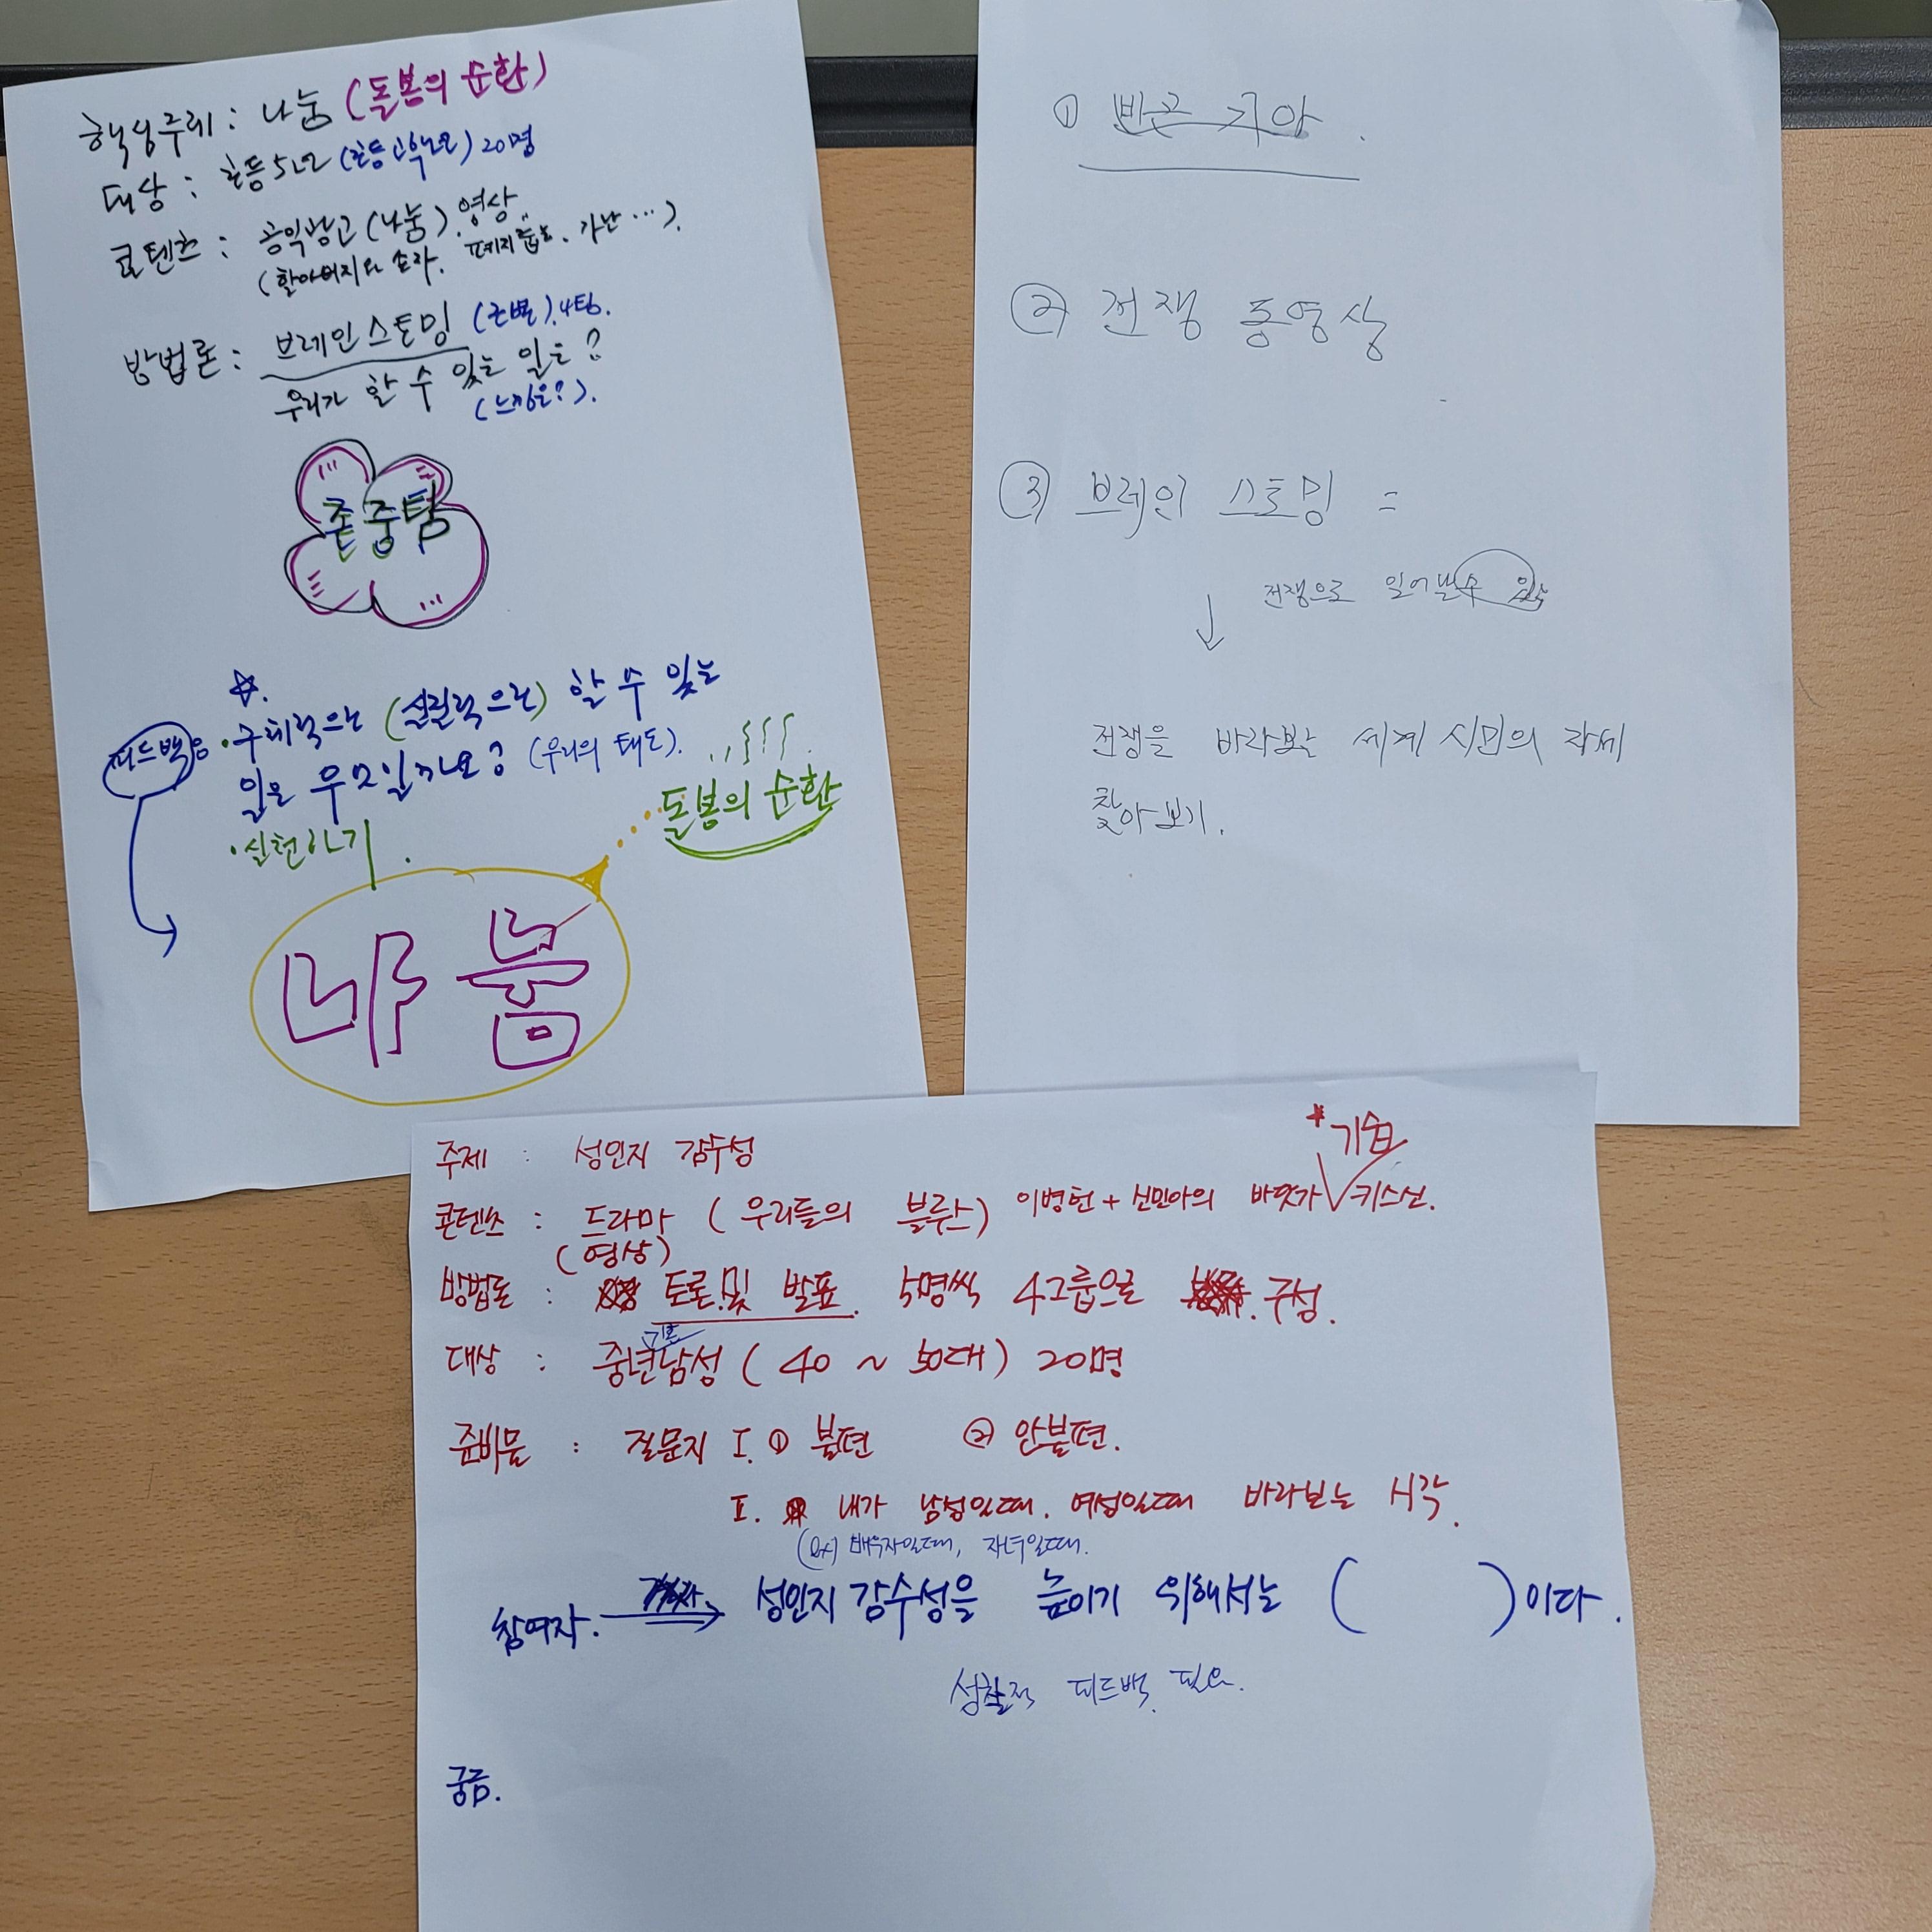 핵심주제 : 나눔 (돌봄의 순환)
대상 : 초등5학년 (초등고학년) 20명
콘텐츠 : 공익광고 (나눔). 영상.
(할아버지와 손자. 폐지줍는. 가난 ···).
방법론 : 브레인스토밍 (조별). 4팀.
우리가 할 수 있는 일은?
(느낌은?).
존중팀
☆.
피드백
• 구체적으로 (실질적으로) 할 수 있는
일은 무엇일까요? (우리의 태도).
• 실천하기.
돌봄의 순환
나눔
① 빈곤 기아.
② 전쟁 동영상
③ 브레인 스토밍 =
전쟁으로 일어날수 있는
↓
전쟁을 바라보는 세계 시민의 자세
찾아보기.
* 기습
주제 : 성인지 감수성
콘텐츠 : 드라마 (우리들의 블루스) 이병헌 + 신민아의 바닷가 키스신.
(영상)
방법론 : 토론.및 발표. 5명씩 4그룹으로 구성.
기혼
대상 : 중년남성 (40 ~ 50대) 20명
준비물 : 질문지 I. ① 불편 ② 안불편.
I. 내가 남성일때. 여성일때 바라보는 시각.
(ex) 배우자일때, 자녀일때.
참여자. → 성인지 감수성을 높이기 위해서는 ( ) 이다.
성찰적 피드백. 필요.
궁금.